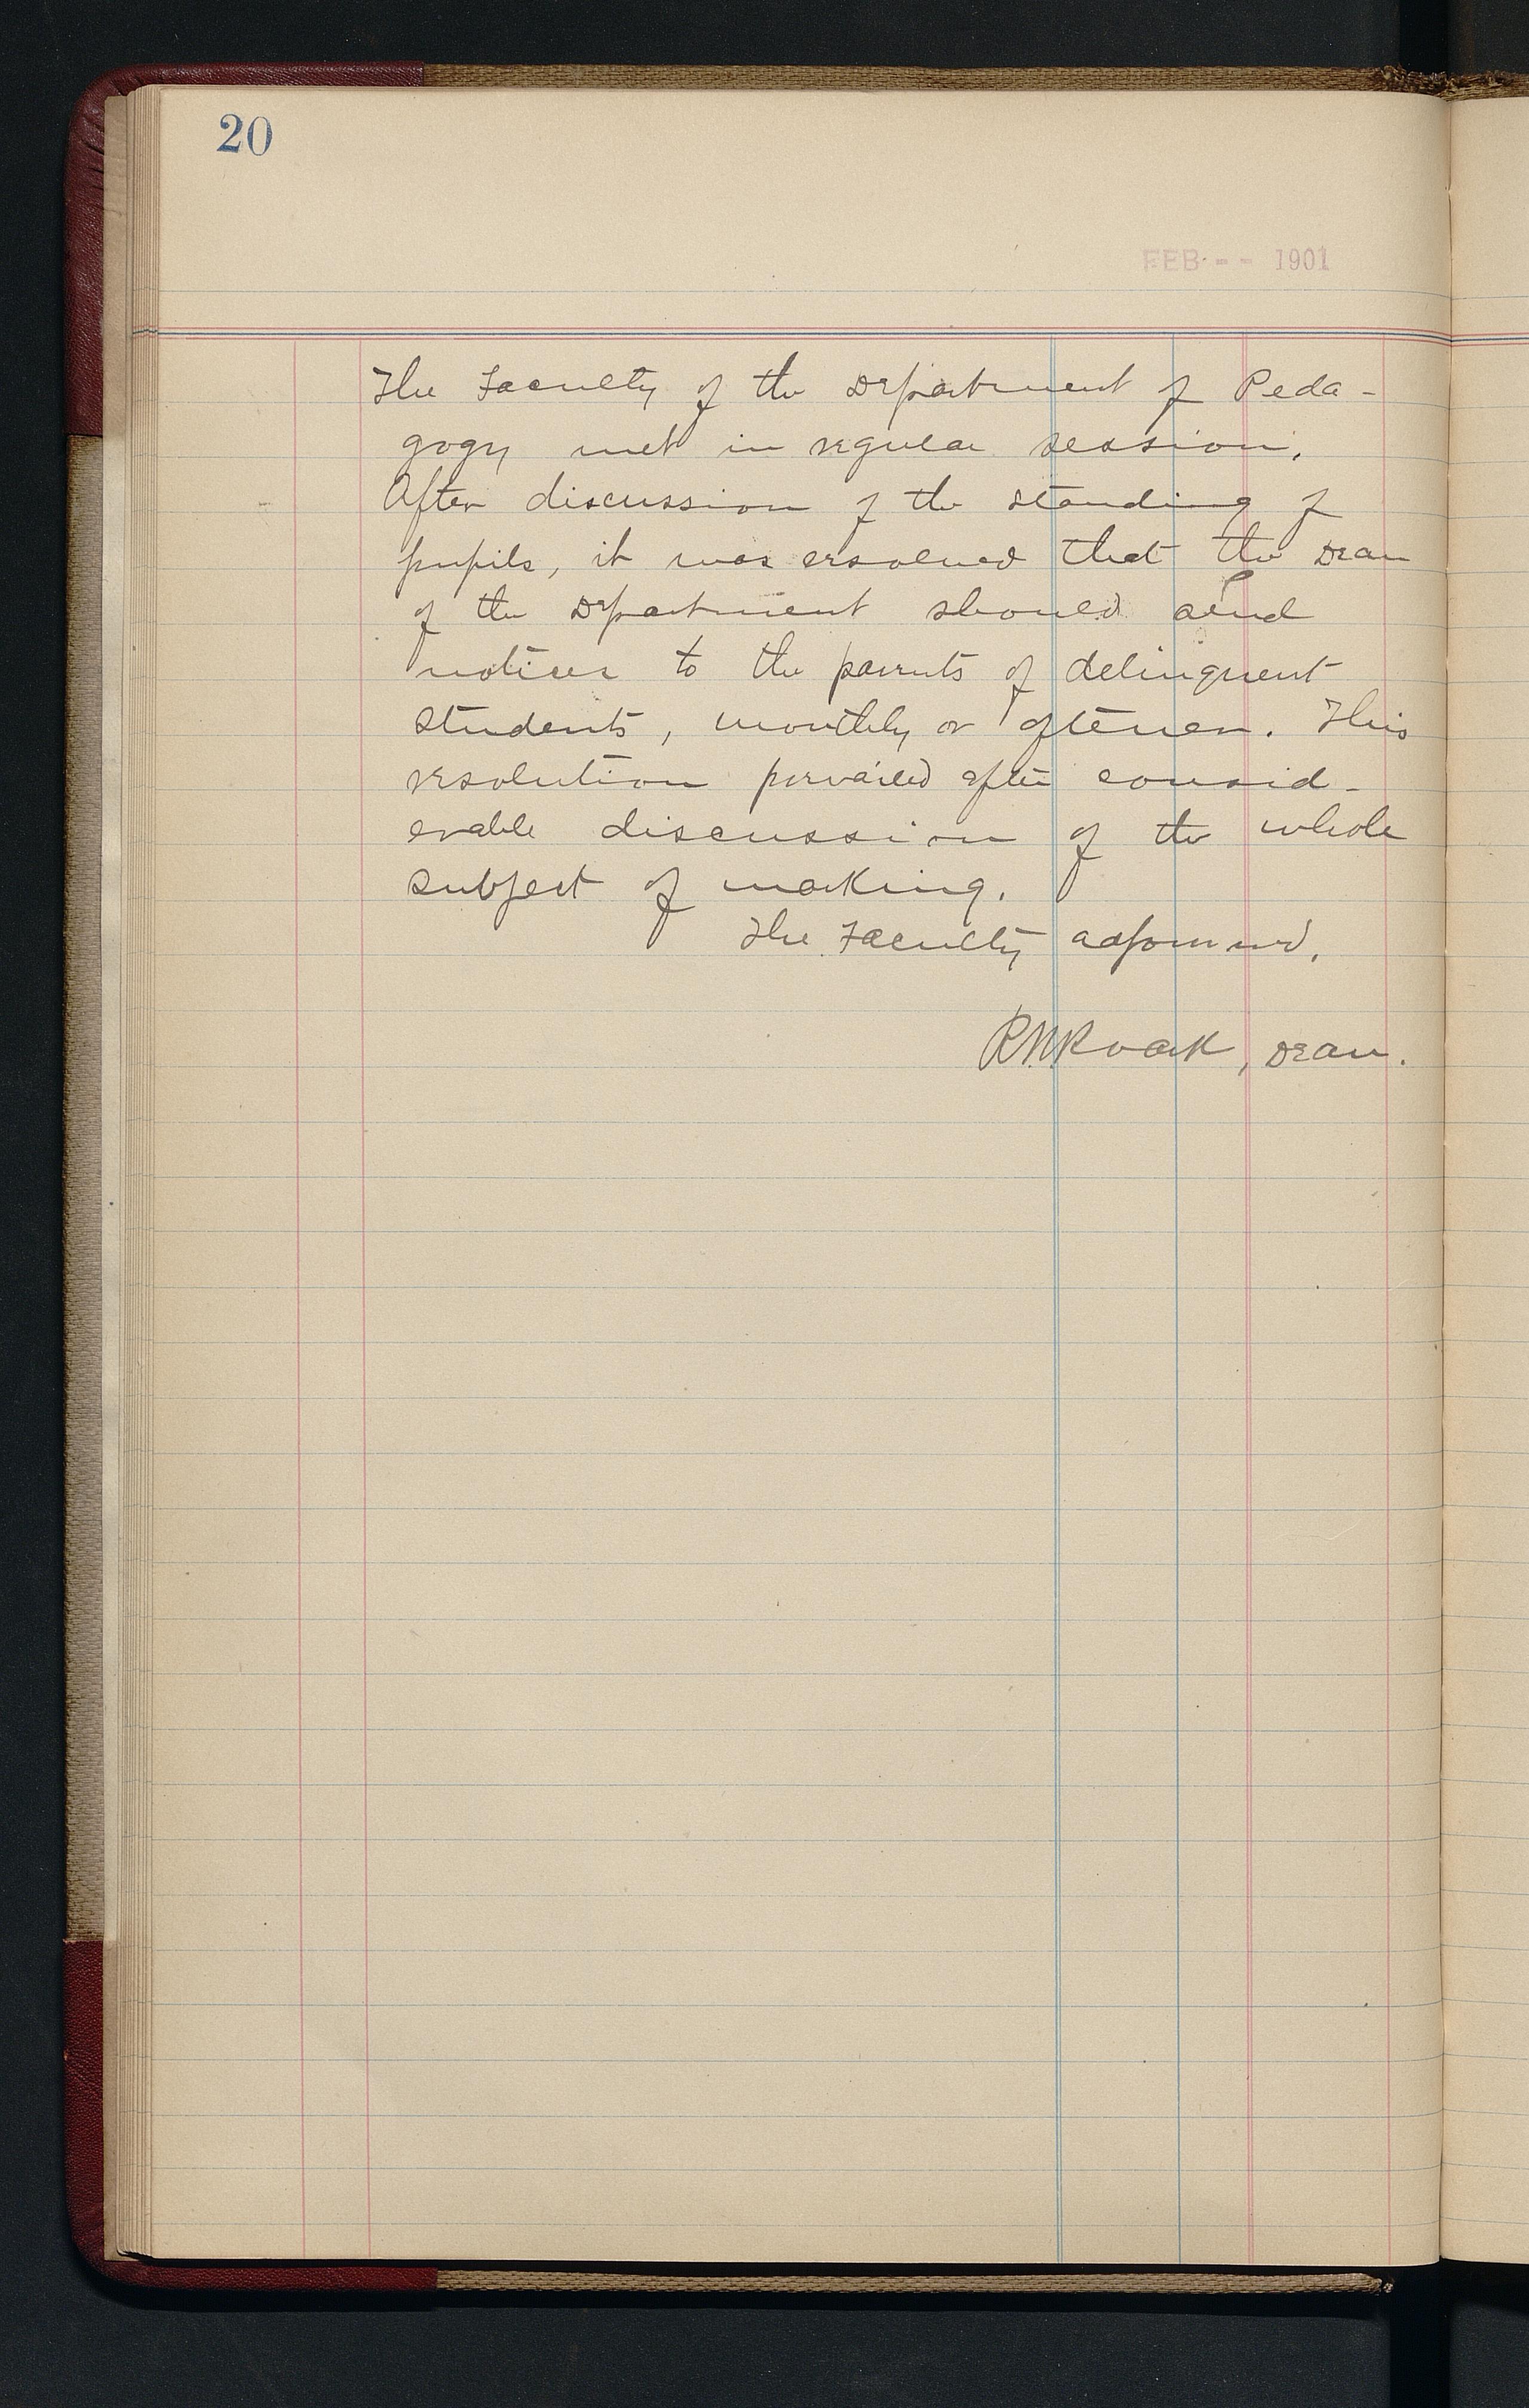 20
FEB -- 1901
The Faculty of the Department of Peda-
gogy met in regular session.
After discussion of the standing of
pupils, it was resolved that the Dean
of the Department should send
notices to the parents of delinquent
students, monthly or oftener. This
resolution prevailed after consid-
erable discussion of the whole
subject of marking.
The Faculty adjourned.
RNRoark, Dean.